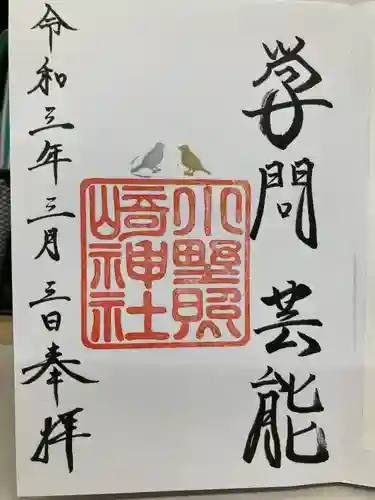 学問 芸能
小野照
崎神社
令和三年三月三日奉拝